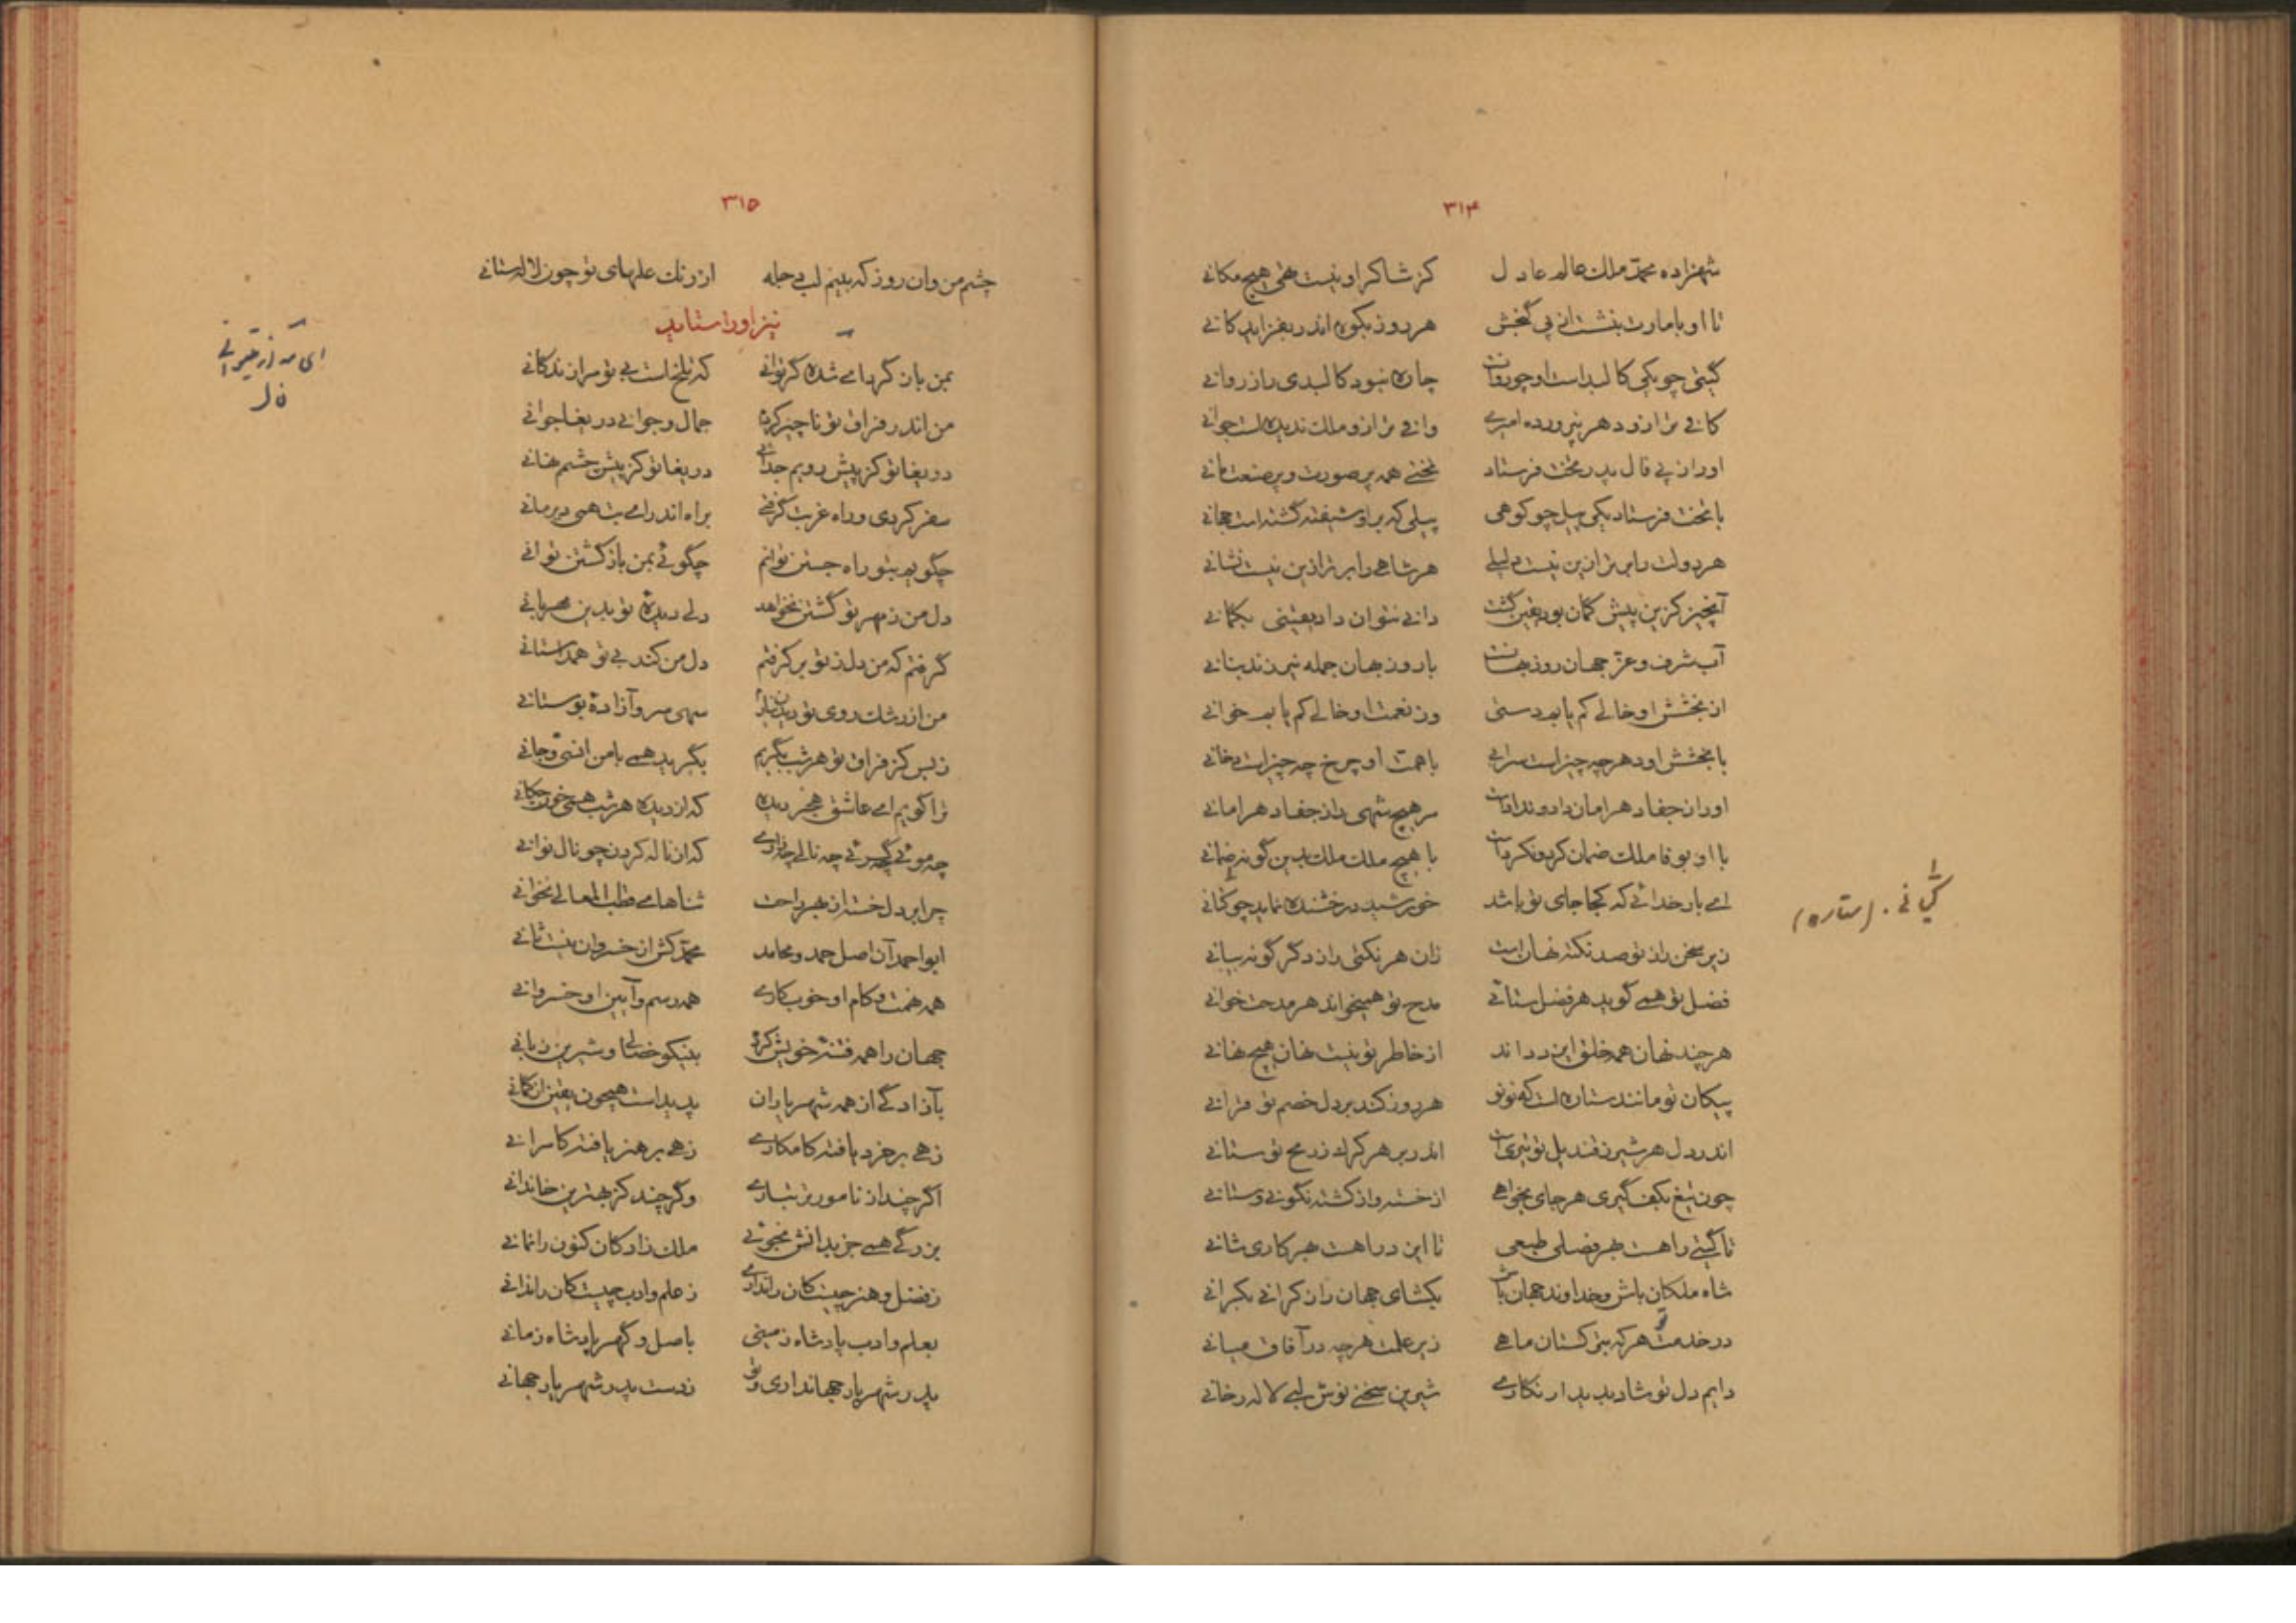 ۳۱۴
شهزاده محمد ملک عالم عادل کز شاکر او نیست تهی هیچ مکانی
تا او بامارت بنشست از پی گنجش هر روز بکوه اندر بفزاید کانی
گیتی چو یکی کالبد است او چو روانست چاره نبود کالبدی را ز روانی
کافی تر ازو دهر نپرورده امیری وافی تر ازو ملک ندیده است جوانی
او را ز پی فال پدر تخت فرستاد تختی همه پر صورت و پر صنعت مانی
با تخت فرستاد یکی پیل چو کوهی پیلی که بر او شیفته گشته است جهانی
هر دولت را برتر ازین نیست دلیلی هر شاهی را برتر ازین نیست نشانی
آنچیز کزین پیش گمان بود یقین گشت دانی نتوان داد یقینی بگمانی
آب شرف و عز جهان روزبهانست با روزبهان جمله نیرزند بنانی
از بخشش او خالی کم یابم دستی وز نعمت او خالی کم یابم خوانی
با بخشش او دهر چه چیز است سرابی با همت او چرخ چه چیز است دخانی
او را ز جفا دهر امان داد و ندادست مر هیچ شهی را ز جفا دهر امانی
با او بوفا ملک ضمان کرد و نکردست با هیچ ملک ملک بدین گونه ضمانی
ای بار خدائی که کجا جای تو باشد خورشید درخشنده نماید چو کتانی
زیر سخن را ز تو صد نکته نهان است زان هر نکتی را ز دگر گونه بیانی
فضل تو همی گوید هر فضل ستائی مدح تو همیخواند هر مدحت خوانی
هر چند نهان همه خلق ایزد داند از خاطر تو نیست نهان هیچ نهانی
پیکان تو مانند ستاره است که نو نو هر روز کند بر دل خصم تو قرانی
اندر دل هر شیر ز قندیل تو تیریست اندر بر هر کرک ز رمح تو سنانی
چون تیغ بکف گیری هر جای بخواهی از خسته و از کشته نگونی و ستانی
تا گیتی را هست بهر فصلی طبعی تا ایزد را هست بهر کاری شانی
شاه ملکان باش و خداوند جهان باش بگشای جهان را ز کرانی بکرانی
در خدمت تو هر که بترکستان ماهی زیر علمت هر چه در آفاق میانی
دایم دل تو شاد بدیدار نگاری شیرین سخنی نوش لبی لاله رخانی
کیانی . (ستاره)
۳۱۵
چشم من وان روز که بینم لب دجله از رنک علمهای تو چون لاله ستانی
نیز او را ستاید
بمن باز گرد ای شده گر توانی که تلخ است بی تو مرا زندگانی
من اندر فراق تو ناچیز کردم جمال و جوانی دریغا جوانی
دریغا تو کز پیش رویم جدائی دریغا تو کز پیش چشم نهانی
سفر کردی و راه غربت گرفتی براه اندر ای بت همی دیر مانی
چگویم بتو راه جستن توانم چگوئی بمن باز گشتن توانی
دل من ز مهر تو گشتن نخواهد دلی دیدهٔ تو بدین مهربانی
گرفتم که من دل ز تو بر گرفتم دل من کند بی تو همداستانی
من از رشک روی تو دیدن نیارم سهی سرو آزادهٔ بوستانی
ز بس کز فراق تو هر شب بگریم بگرید همی با من انسی و جانی
ترا گویم ای عاشق هجر دیده که از دیده هر شب همی خون چکانی
چه موئی چه گریی چه نالی چه زاری که از ناله کردن چو نال نوانی
چرا بر دل خسته از بهر راحت ثناهای قطب المعالی نخوانی
ابو احمد آن اصل حمد و محامد محمد کش از خسروان نیست ثانی
همه نهمت و کام او خوب کاری همه رسم و آیین او خسروانی
جهان را همه فتنهٔ خویش کرده بنیکو خصالی و شیرین زبانی
بآزادگی از همه شهریاران پدید است همچون یقین از گمانی
زهی بر خرد یافته کامکاری زهی بر هنر یافته کامرانی
اگر چند از نامورتر تباری وگر چند کز بهترین خاندانی
بزرگی همی جز بدانش نجوئی ملک زادگان کنون را نمانی
ز فضل و هنر چیست کان را نداری ز علم و ادب چیست کان را ندانی
بعلم و ادب پادشاه زمینی باصل و گهر پادشاه زمانی
پدر شهریار جهانداری و تو ز دست پدر شهریار جهانی